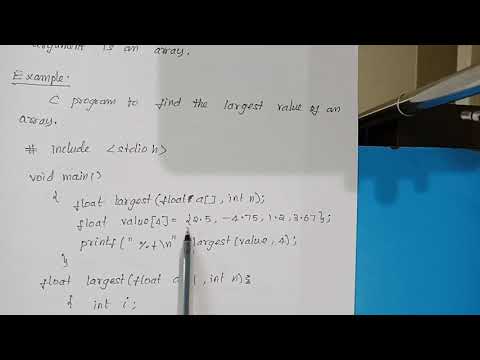 argument is an array.
Example:
C program to find the largest value of an
array.
# include <stdio.h>
void main()
{ float largest(float a[], int n);
float value[4] = {2.5, -4.75, 1.2, 3.67};
printf(" %f \n" largest(value, 4);
}
float largest(float a [ ], int n);
{ int i;